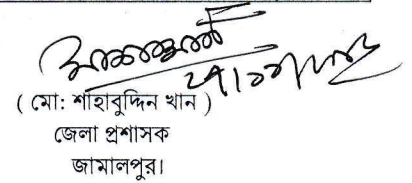 ( মো: শাহাবুদ্দিন খান )
জেলা প্রশাসক
জামালপুর।